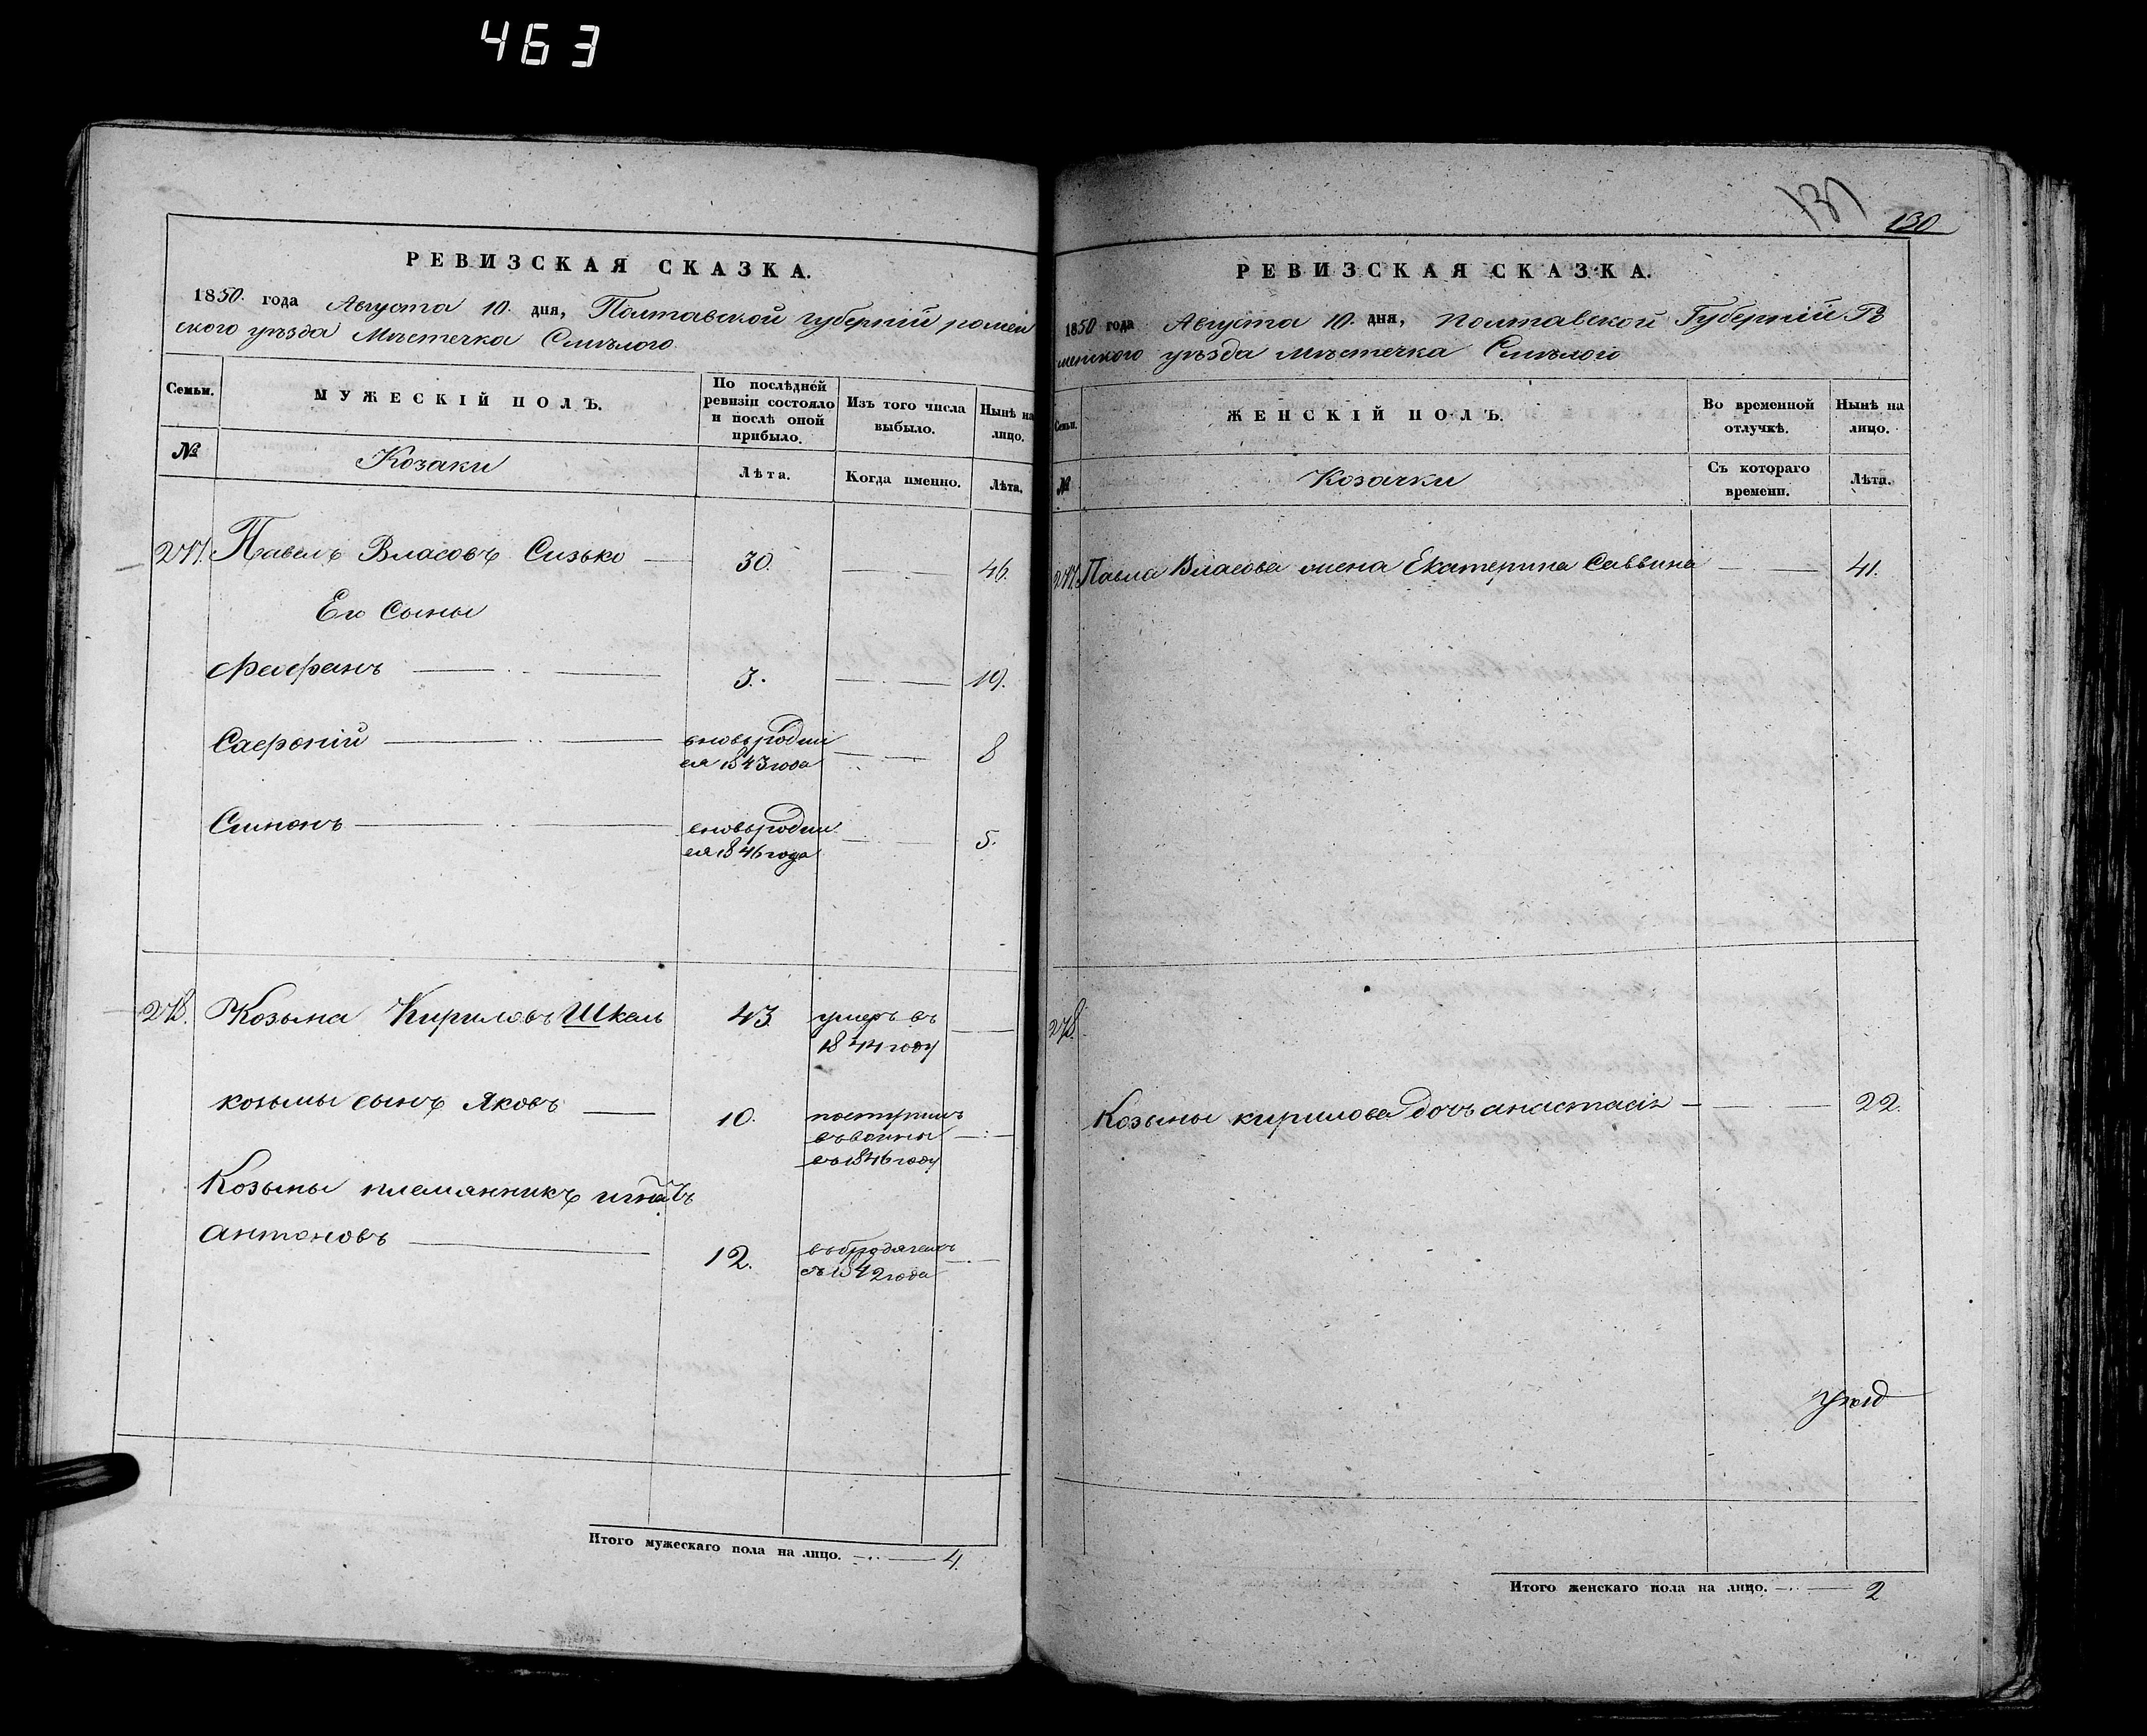 463
РЕВИЗСКАЯ СКАЗКА.
1850. года Августа 10. дня, Полтавской губерніи ромен
ского уѣзда Мѣстечка Смѣлого
Семьи.
МУЖЕСКІЙ ПОЛЪ.
По послѣдней ревизіи состояло и послѣ оной прибыло.
Изъ того числа выбыло.
Нынѣ на лицо.
№
Козаки
Лѣта.
Когда именно.
Лѣта.
277. Павелъ Власовъ Сизько 30. 46.
Его Сыны
3. 19.
Сафроній вновь родил
ся 1843 года 8
Симонъ вновь родил
ся 1846 года 5.
278. Козьма Кириловъ Шкель 43 умеръ въ
1844 году
козьмы сынъ Яковъ 10. поступилъ
въ воины
въ 1846 году
Козьмы племянникъ игнатъ
антоновъ 12. въ бродягахъ
съ 1842 года
Итого мужескаго пола на лицо. 4.
131
130
РЕВИЗСКАЯ СКАЗКА.
1850 года Августа 10. дня, Полтавской Губерніи Ро
менского уѣзда мѣстечка Смѣлого
Семьи.
ЖЕНСКІЙ ПОЛЪ.
Во временной отлучкѣ.
Нынѣ на лицо.
№
Козачки
Съ котораго времени.
Лѣта.
277. Павла Власова жена Екатерина Саввина 41.
278.
Козьмы кирилова дочь анастасія 22.
Итого женскаго пола на лицо. 2